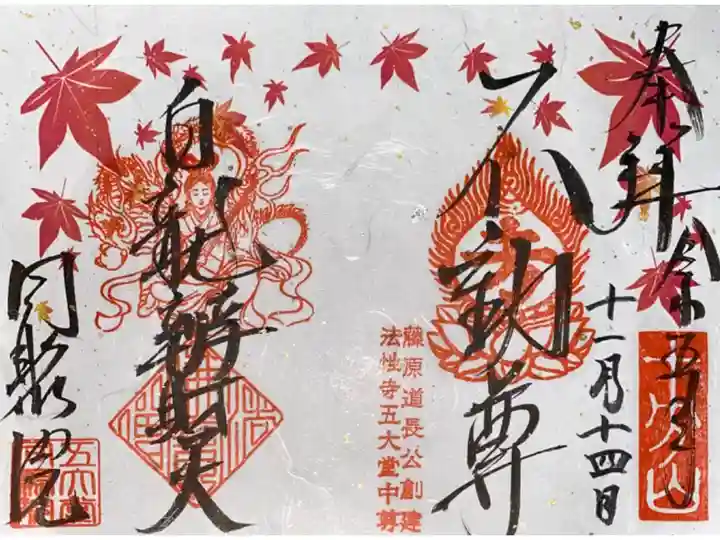 奉拝 令和五年
十一月十四日
不動尊
藤原道長公創建
法性寺五大堂中尊
白龍辨財天
同聚院